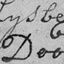 lysbe
Doo